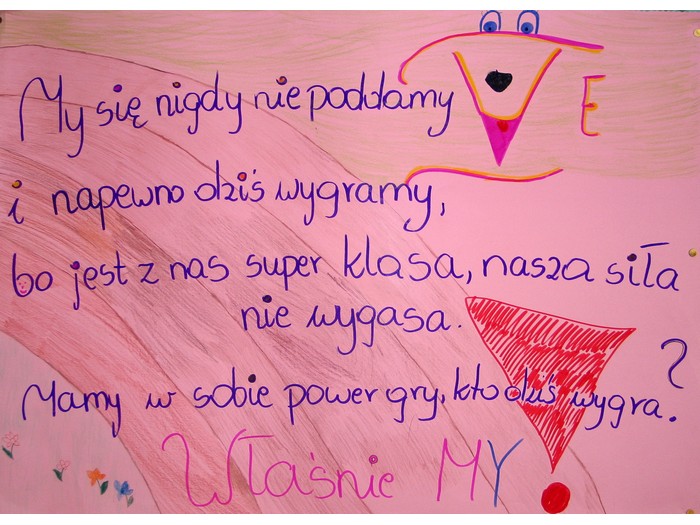 V E
My się nigdy nie poddamy
i napewno dziś wygramy,
bo jest z nas super klasa, nasza siła
nie wygasa.
Mamy w sobie power gry, kto dziś wygra?
Właśnie MY!